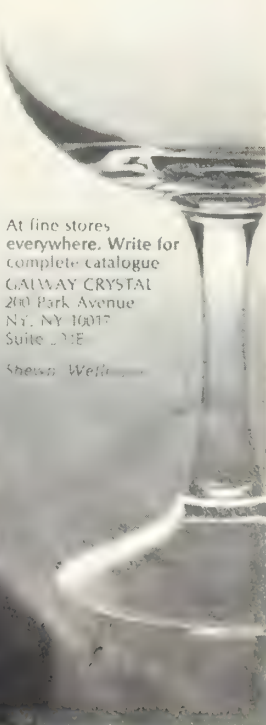 At fine stores
everywhere. Write for
complete catalogue
GALWAY CRYSTAL
200 Park Avenue
NY, NY 10017
Suite
Shown: